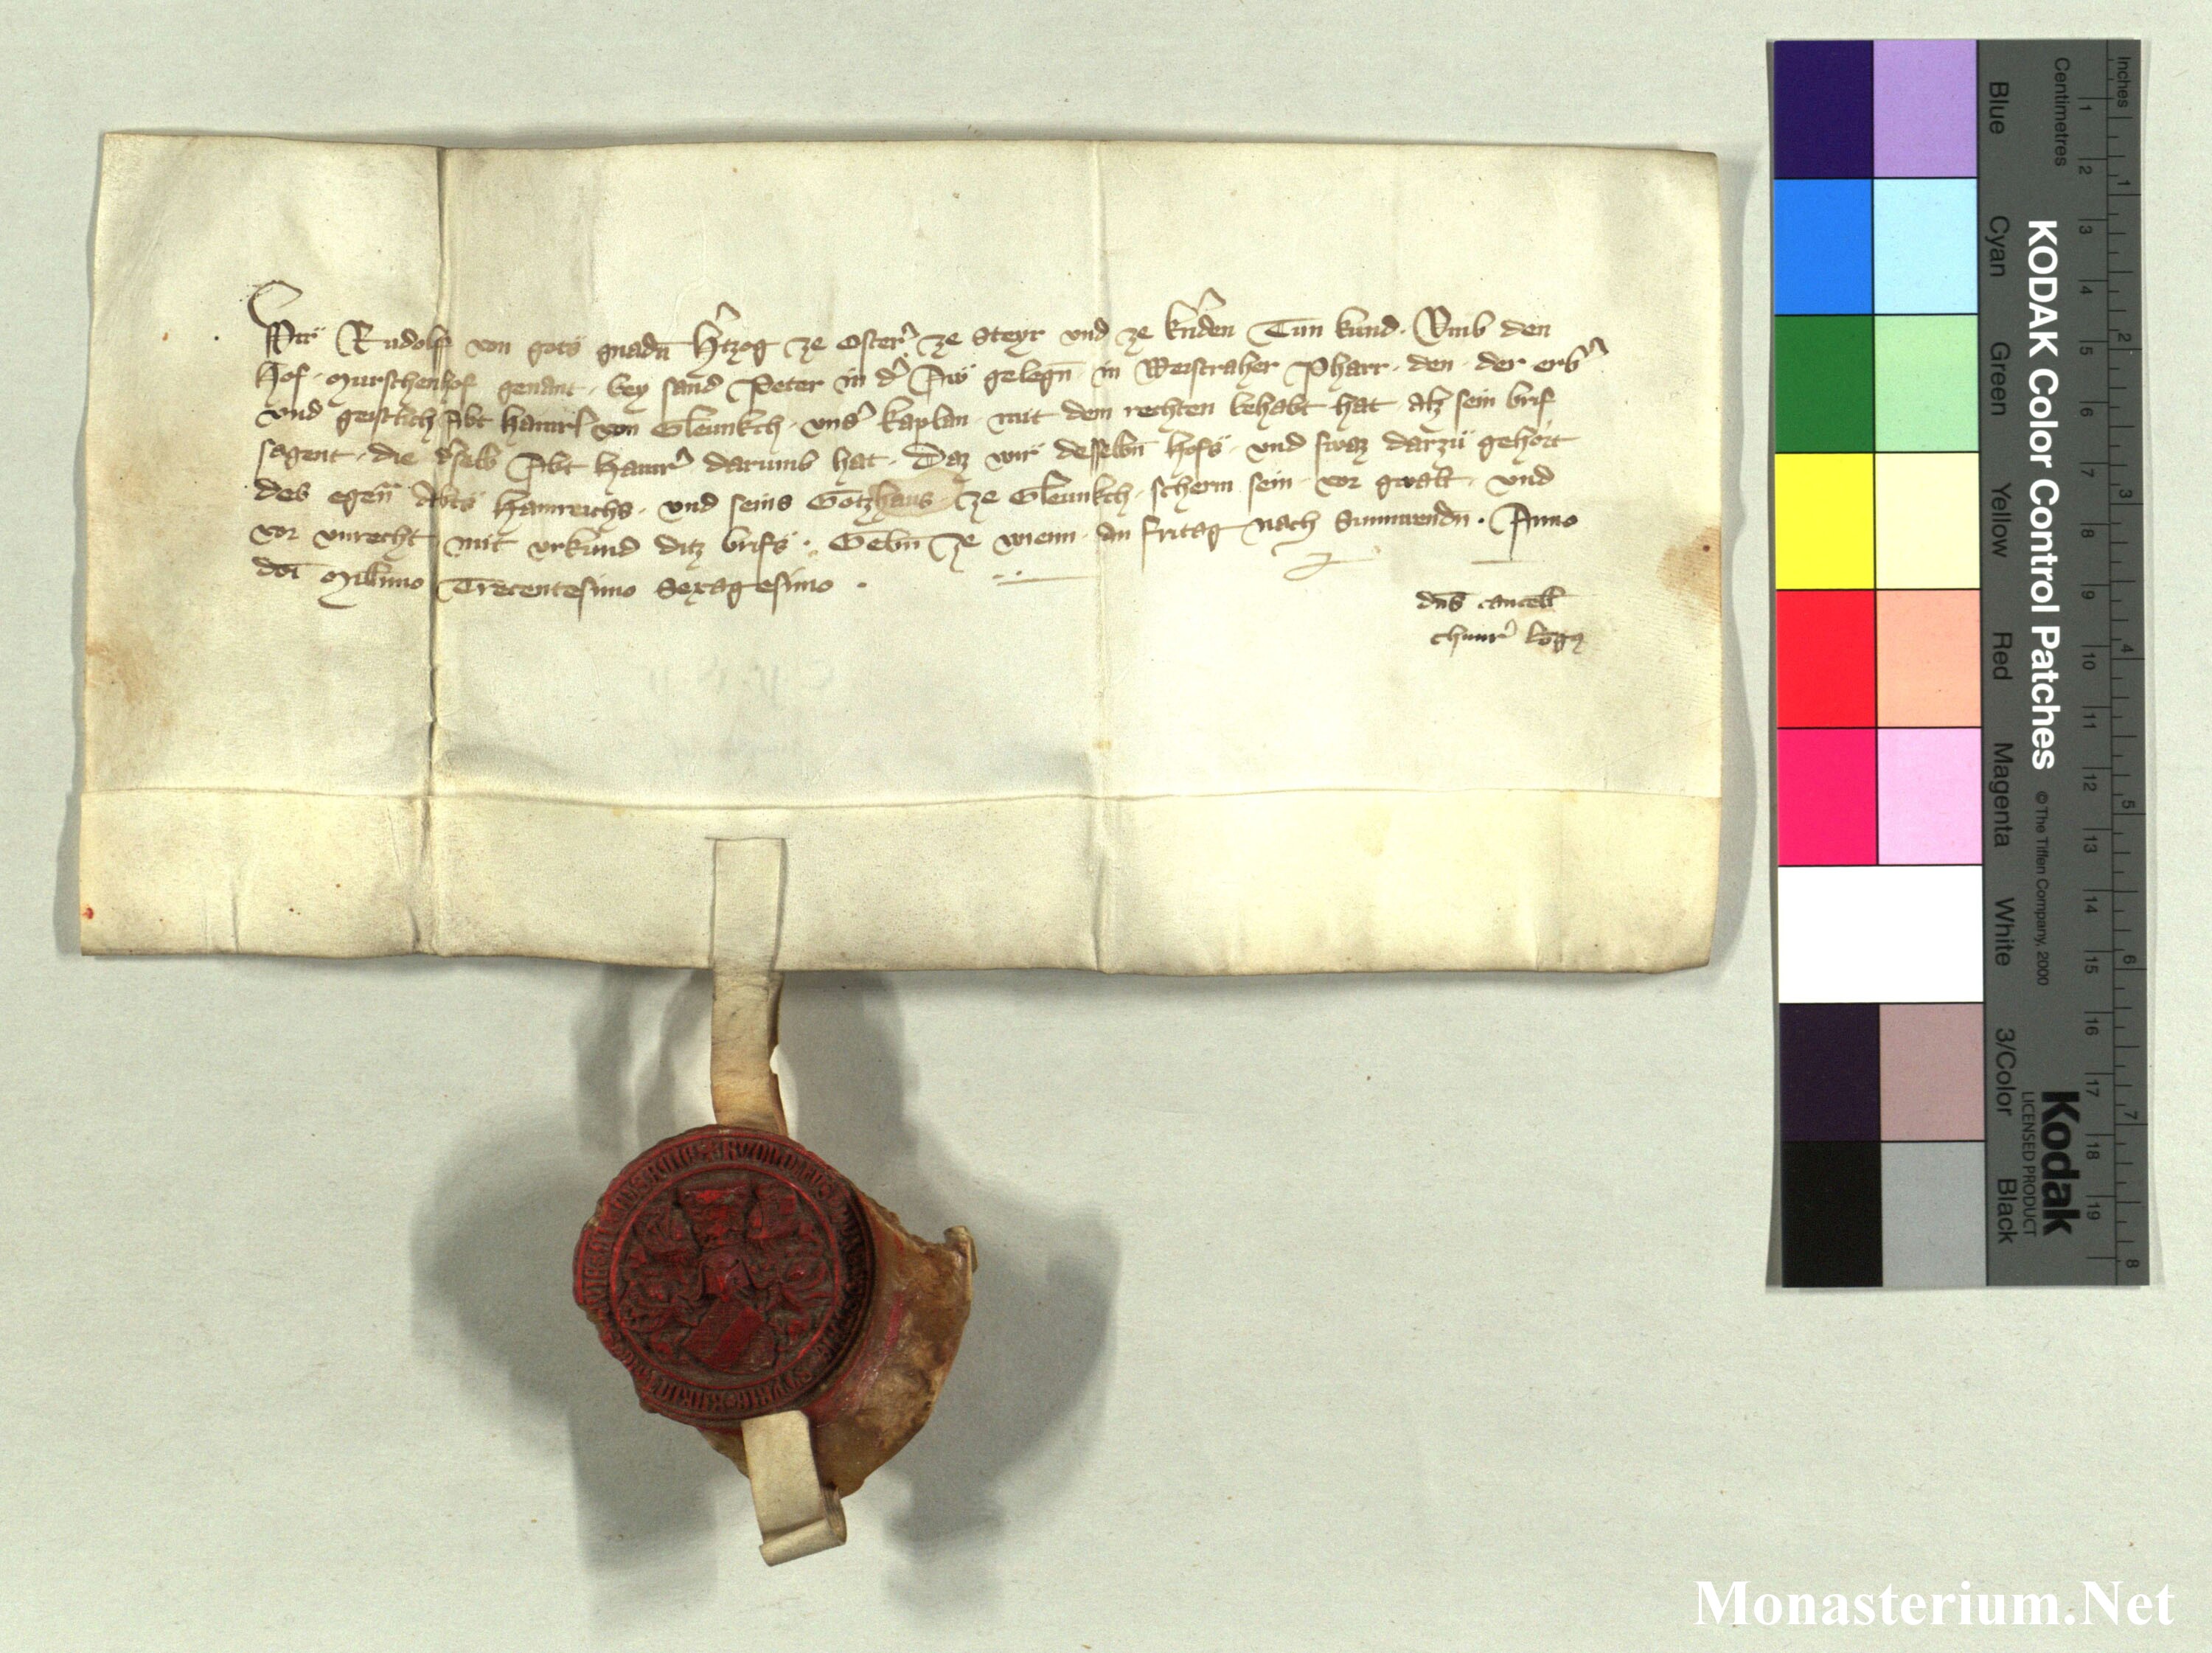 Wir Rudolf von gots gnadn̄ H'tzog ze Oster' ze Steyr vnd ze kn'den Tun kund. Vmb den
Hof. Murschenhof genant. bey sand Peter in d' Aw gelegn̄ in Weistraher Pharr. den. der erb'
vnd geistlich Abt Hainr' von Gleunkch. vns' kaplan. mit dem rechten behabt hat. alz sein brif
sagent. die d'selb Abt Hainr' darumb hat. Daz wir desselbn̄ hofs. vnd swaz darzů gehört
des egen̄ Abts Hainreichs. vnd seins Gotzhaus ze Gleunkch. scherm sein. vor gwalt. vnd
vor vnrecht mit vrkund ditz brifs. Gebn̄ ze wienn. an fritag nach Sunnwendn̄. Anno
dn̄i Millimo Trecentesimo Sexagesimo.
dn̄s cancell
Inches
Centimetres
1 2 3 4 5 6 7 8 9 10 11 12 13 14 15 16 17 18 19
1 2 3 4 5 6 7 8
KODAK Color Control Patches
© The Tiffen Company, 2000
Kodak
LICENSED PRODUCT
Blue Cyan Green Yellow Red Magenta White 3/Color Black
Monasterium.Net